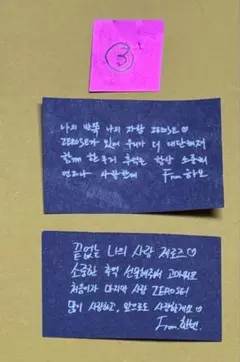 ③
나의 반쪽 나의 자랑 ZEROSE♡
ZEROSE가 있어 우리가 더 대단해져
함께 한 우리 추억은 항상 소중해
언제나 사랑한해
From.하오
끝없는 나의 사랑 제로즈♡
소중한 추억 선물해줘서 고마워요
처음이자 마지막 사랑 ZEROSE!
많이 사랑하고, 앞으로도 사랑하게요♡
From.한빈